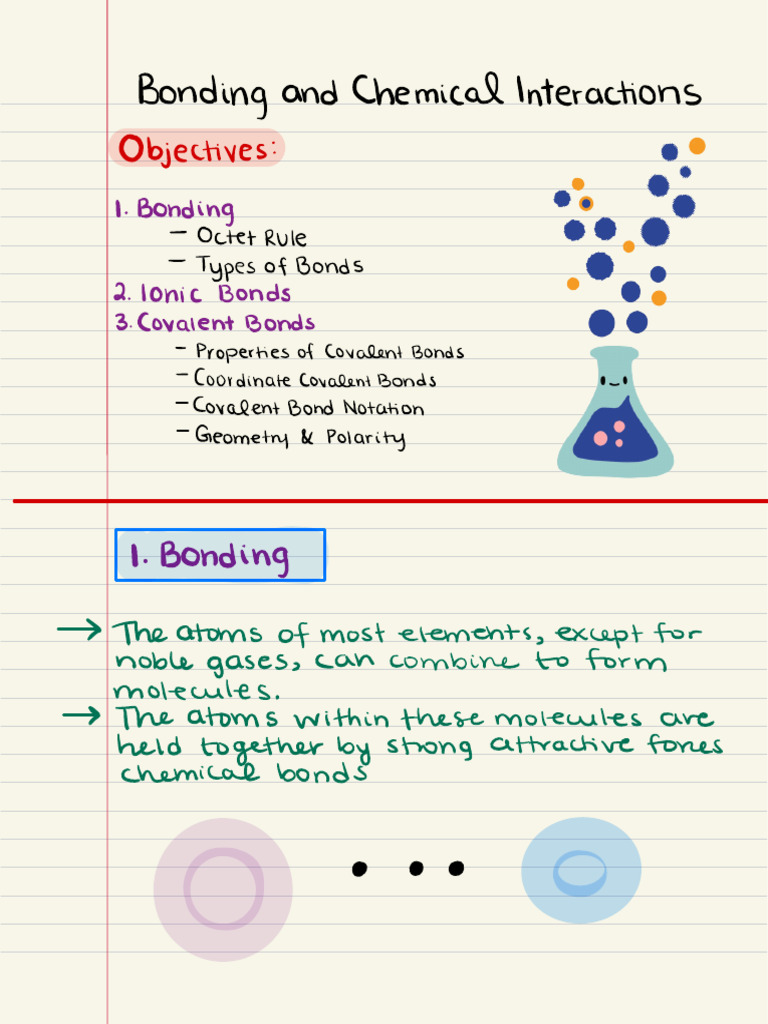 Bonding and Chemical Interactions
Objectives:
1. Bonding
- Octet Rule
- Types of Bonds
2. Ionic Bonds
3. Covalent Bonds
- Properties of Covalent Bonds
- Coordinate Covalent Bonds
- Covalent Bond Notation
- Geometry & Polarity
1. Bonding
→ The atoms of most elements, except for
noble gases, can combine to form
molecules.
→ The atoms within these molecules are
held together by strong attractive forces
chemical bonds